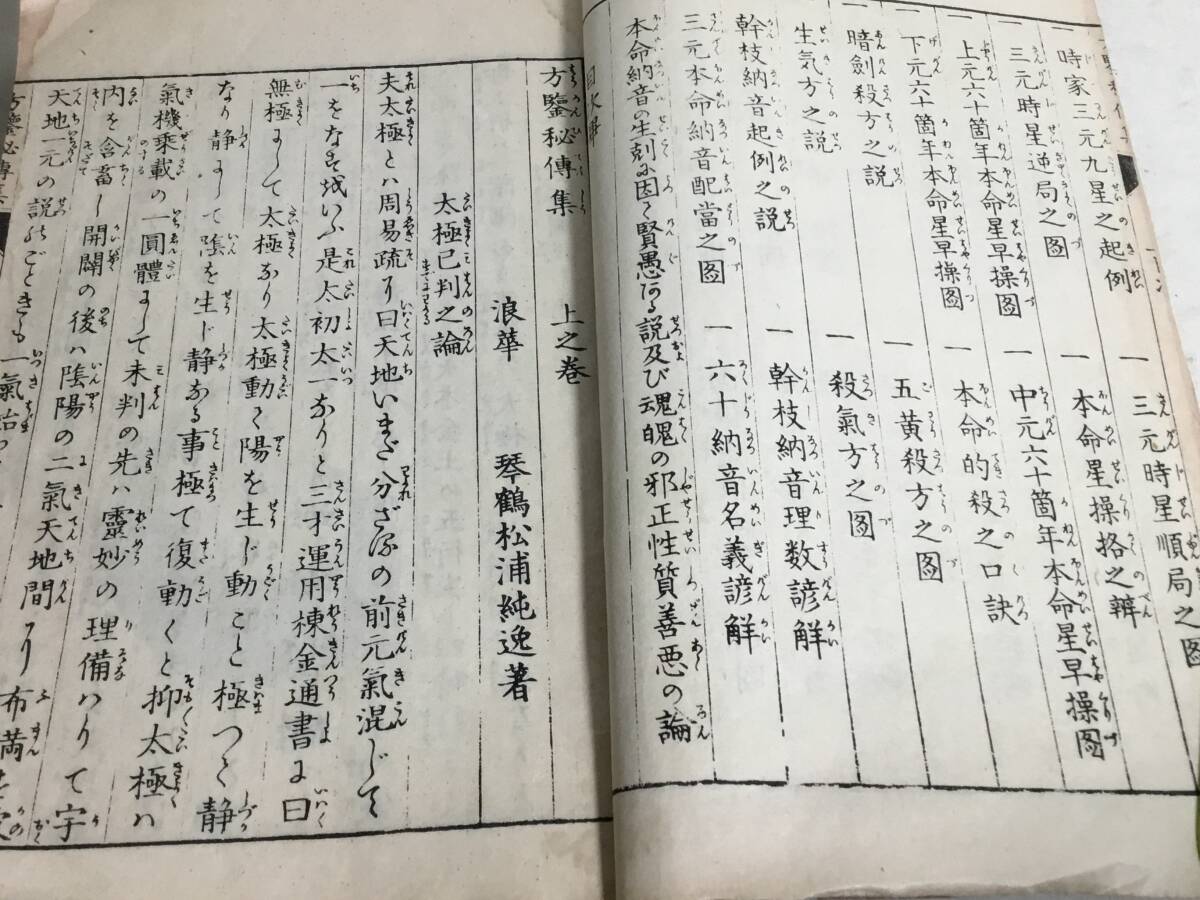 一 時家三元九星之起例 一 三元時星順局之図
一 三元時星逆局之図 一 本命星操挌之辨
一 上元六十箇年本命星早操図 一 中元六十箇年本命星早操図
一 下元六十箇年本命星早操図 一 本命的殺之口訣
一 暗劍殺方之説 一 五黄殺方之図
生気方之説 一 殺氣方之図
幹枝納音起例之説 一 幹枝納音理数諺解
三元本命納音配當之図 一 六十納音名義諺解
本命納音の生剋に因て賢愚ある説及び魂魄の邪正性質善悪の論
方鑒秘傳集 上之巻
浪華 琴鶴松浦純逸著
太極已判之論
夫太極とハ周易疏に曰天地いまだ分ざるの前元氣混じて
一をなすをいふ是太初太一なりと三才運用棟金通書に曰
無極にして太極なり太極動て陽を生じ動こと極つて静
なり静にして陰を生じ静なる事極て復動くと抑太極ハ
氣機乗載の一圓體にして未判の先ハ靈妙の理備ハりて宇
内を含畜し開闢の後ハ陰陽の二氣天地間に布満
天地一元の説のごときも一氣
方鑒秘傳集